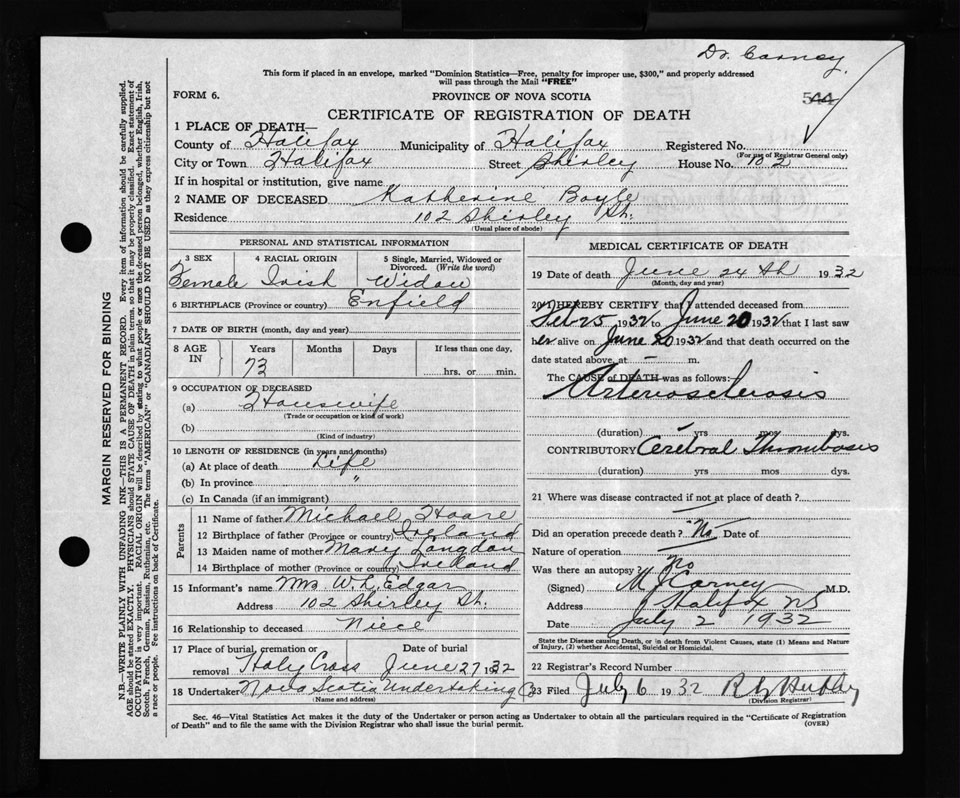 Dr. Carney.
This form if placed in an envelope, marked "Dominion Statistics—Free, penalty for improper use, $300," and properly addressed
will pass through the Mail "FREE"
FORM 6.
PROVINCE OF NOVA SCOTIA
544
CERTIFICATE OF REGISTRATION OF DEATH
1 PLACE OF DEATH—
County of Halifax Municipality of Halifax Registered No.
(For use of Registrar General only)
City or Town Halifax Street Shirley House No. 102
If in hospital or institution, give name
2 NAME OF DECEASED Katherine Boyle
Residence 102 Shirley St.
(Usual place of abode)
PERSONAL AND STATISTICAL INFORMATION
3 SEX 4 RACIAL ORIGIN 5 Single, Married, Widowed or
Divorced. (Write the word)
Female Irish Widow
6 BIRTHPLACE (Province or country) Enfield
7 DATE OF BIRTH (month, day and year)
8 AGE IN Years Months Days If less than one day,
73 hrs. or min.
9 OCCUPATION OF DECEASED
(a) Housewife
(Trade or occupation or kind of work)
(b)
(Kind of industry)
10 LENGTH OF RESIDENCE (in years and months)
(a) At place of death Life
(b) In province "
(c) In Canada (if an immigrant)
Parents
11 Name of father Michael Hoare
12 Birthplace of father (Province or country) Ireland
13 Maiden name of mother Mary Langdon
14 Birthplace of mother (Province or country) Ireland
15 Informant's name Mrs W. L. Edgar
Address 102 Shirley St.
16 Relationship to deceased Niece
17 Place of burial, cremation or Date of burial
removal Holy Cross June 27, 32
18 Undertaker Nova Scotia Undertaking Co
(Name and address)
MEDICAL CERTIFICATE OF DEATH
19 Date of death June 24th 1932
(Month, day and year)
20 I HEREBY CERTIFY that I attended deceased from
Feb 25 1932 to June 20 1932 that I last saw
her alive on June 20 1932 and that death occurred on the
date stated above, at — m.
The CAUSE of DEATH was as follows:
Arteriosclerosis
(duration) yrs mos dys.
CONTRIBUTORY Cerebral Thrombosis
(duration) yrs mos dys.
21 Where was disease contracted if not at place of death?
Did an operation precede death? No Date of
Nature of operation
Was there an autopsy? No
(Signed) M J Carney M.D.
Address Halifax NS
Date July 2 1932
State the Disease causing Death, or in death from Violent Causes, state (1) Means and Nature
of Injury, (2) whether Accidental, Suicidal or Homicidal.
22 Registrar's Record Number
23 Filed July 6 1932
(Division Registrar)
Sec. 46—Vital Statistics Act makes it the duty of the Undertaker or person acting as Undertaker to obtain all the particulars required in the "Certificate of Registration
of Death" and to file the same with the Division Registrar who shall issue the burial permit.
(OVER)
MARGIN RESERVED FOR BINDING
N.B.—WRITE PLAINLY WITH UNFADING INK—THIS IS A PERMANENT RECORD. Every item of information should be carefully supplied.
AGE should be stated EXACTLY. PHYSICIANS should STATE CAUSE OF DEATH in plain terms, so that it may be properly classified. Exact statement of
OCCUPATION is very important. RACIAL ORIGIN will be described by stating to what people or race the deceased person belonged, whether English, Irish,
Scotch, French, German, Russian, Ruthenian, etc. The terms "AMERICAN" or "CANADIAN" SHOULD NOT BE USED as they express citizenship but not
a race or people. See instructions on back of Certificate.